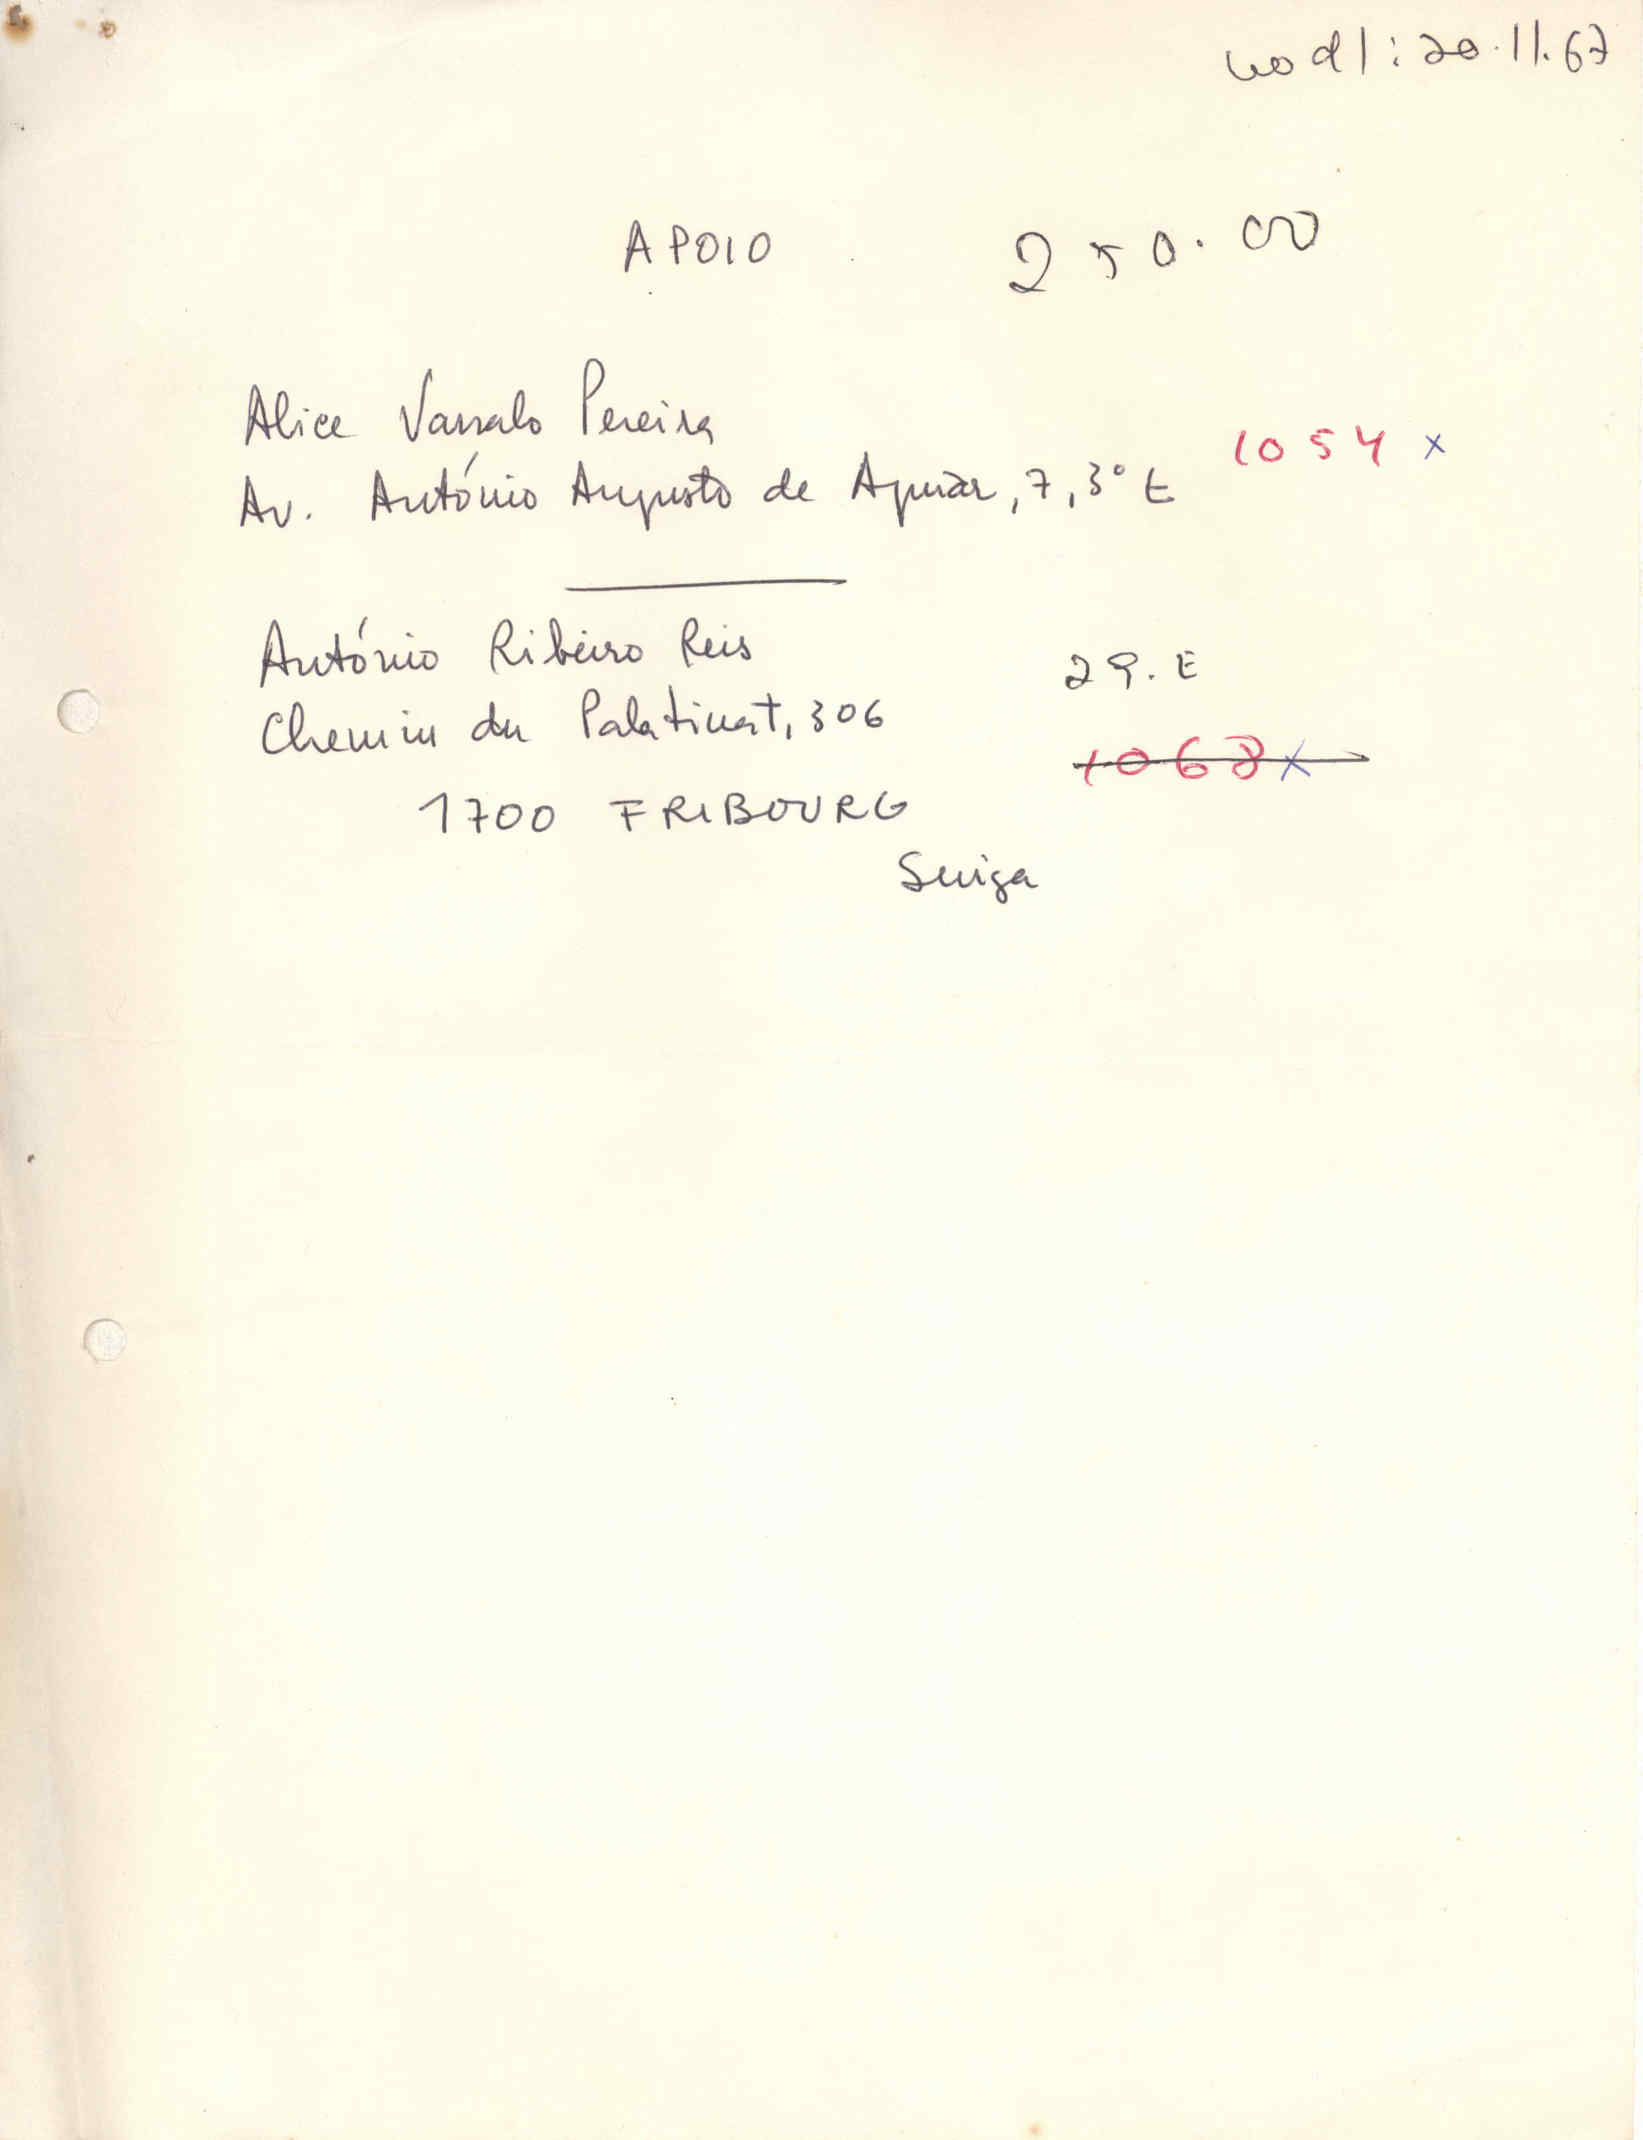 20.11.67
APOIO 250.00
Alice Vassalo Pereira
1054 x
Av. António Augusto de Aguiar, 7, 3º E
António Ribeiro Reis
29. E
Chemin du Palatinat, 306
1068 x
1700 FRIBOURG
Suiça